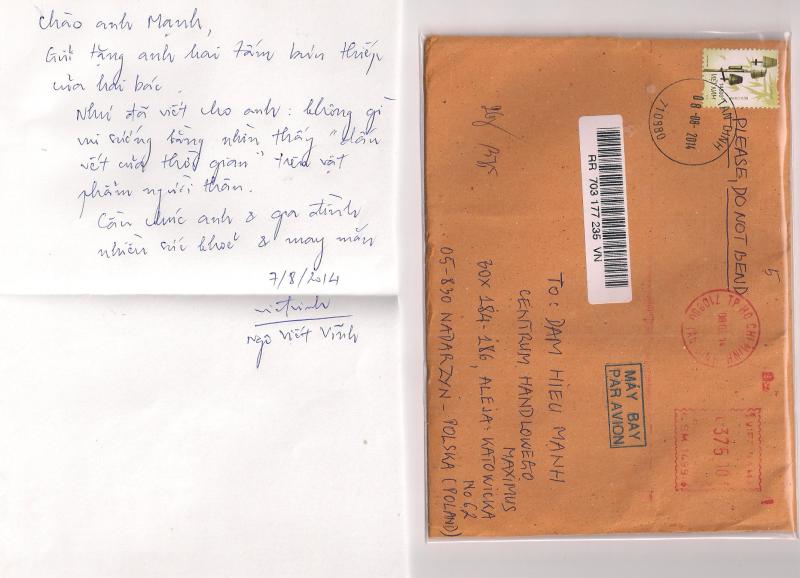 Chào anh Mạnh,
Gửi tặng anh hai tấm bưu thiếp
của hai bác.
Như đã viết cho anh: không gì
vui sướng bằng nhìn thấy "dấu
vết của thời gian" trên vật
phẩm người thân.
Cầu chúc anh & gia đình
nhiều sức khoẻ & may mắn
7/8/2014
Ngô Viết Vĩnh
VIETNAM
TAN DINH
08-08-2014
710980
PLEASE, DO NOT BEND
5
RR 703 177 235 VN
TO: DAM HIEU MANH
CENTRUM HANDLOWEGO
MAXIMUS
BOX 184-186, ALEJA: KATOWICKA
NO 62
05-830 NADARZYN - POLSKA (POLAND)
MÁY BAY
PAR AVION
TP HO CHI MINH
375 10